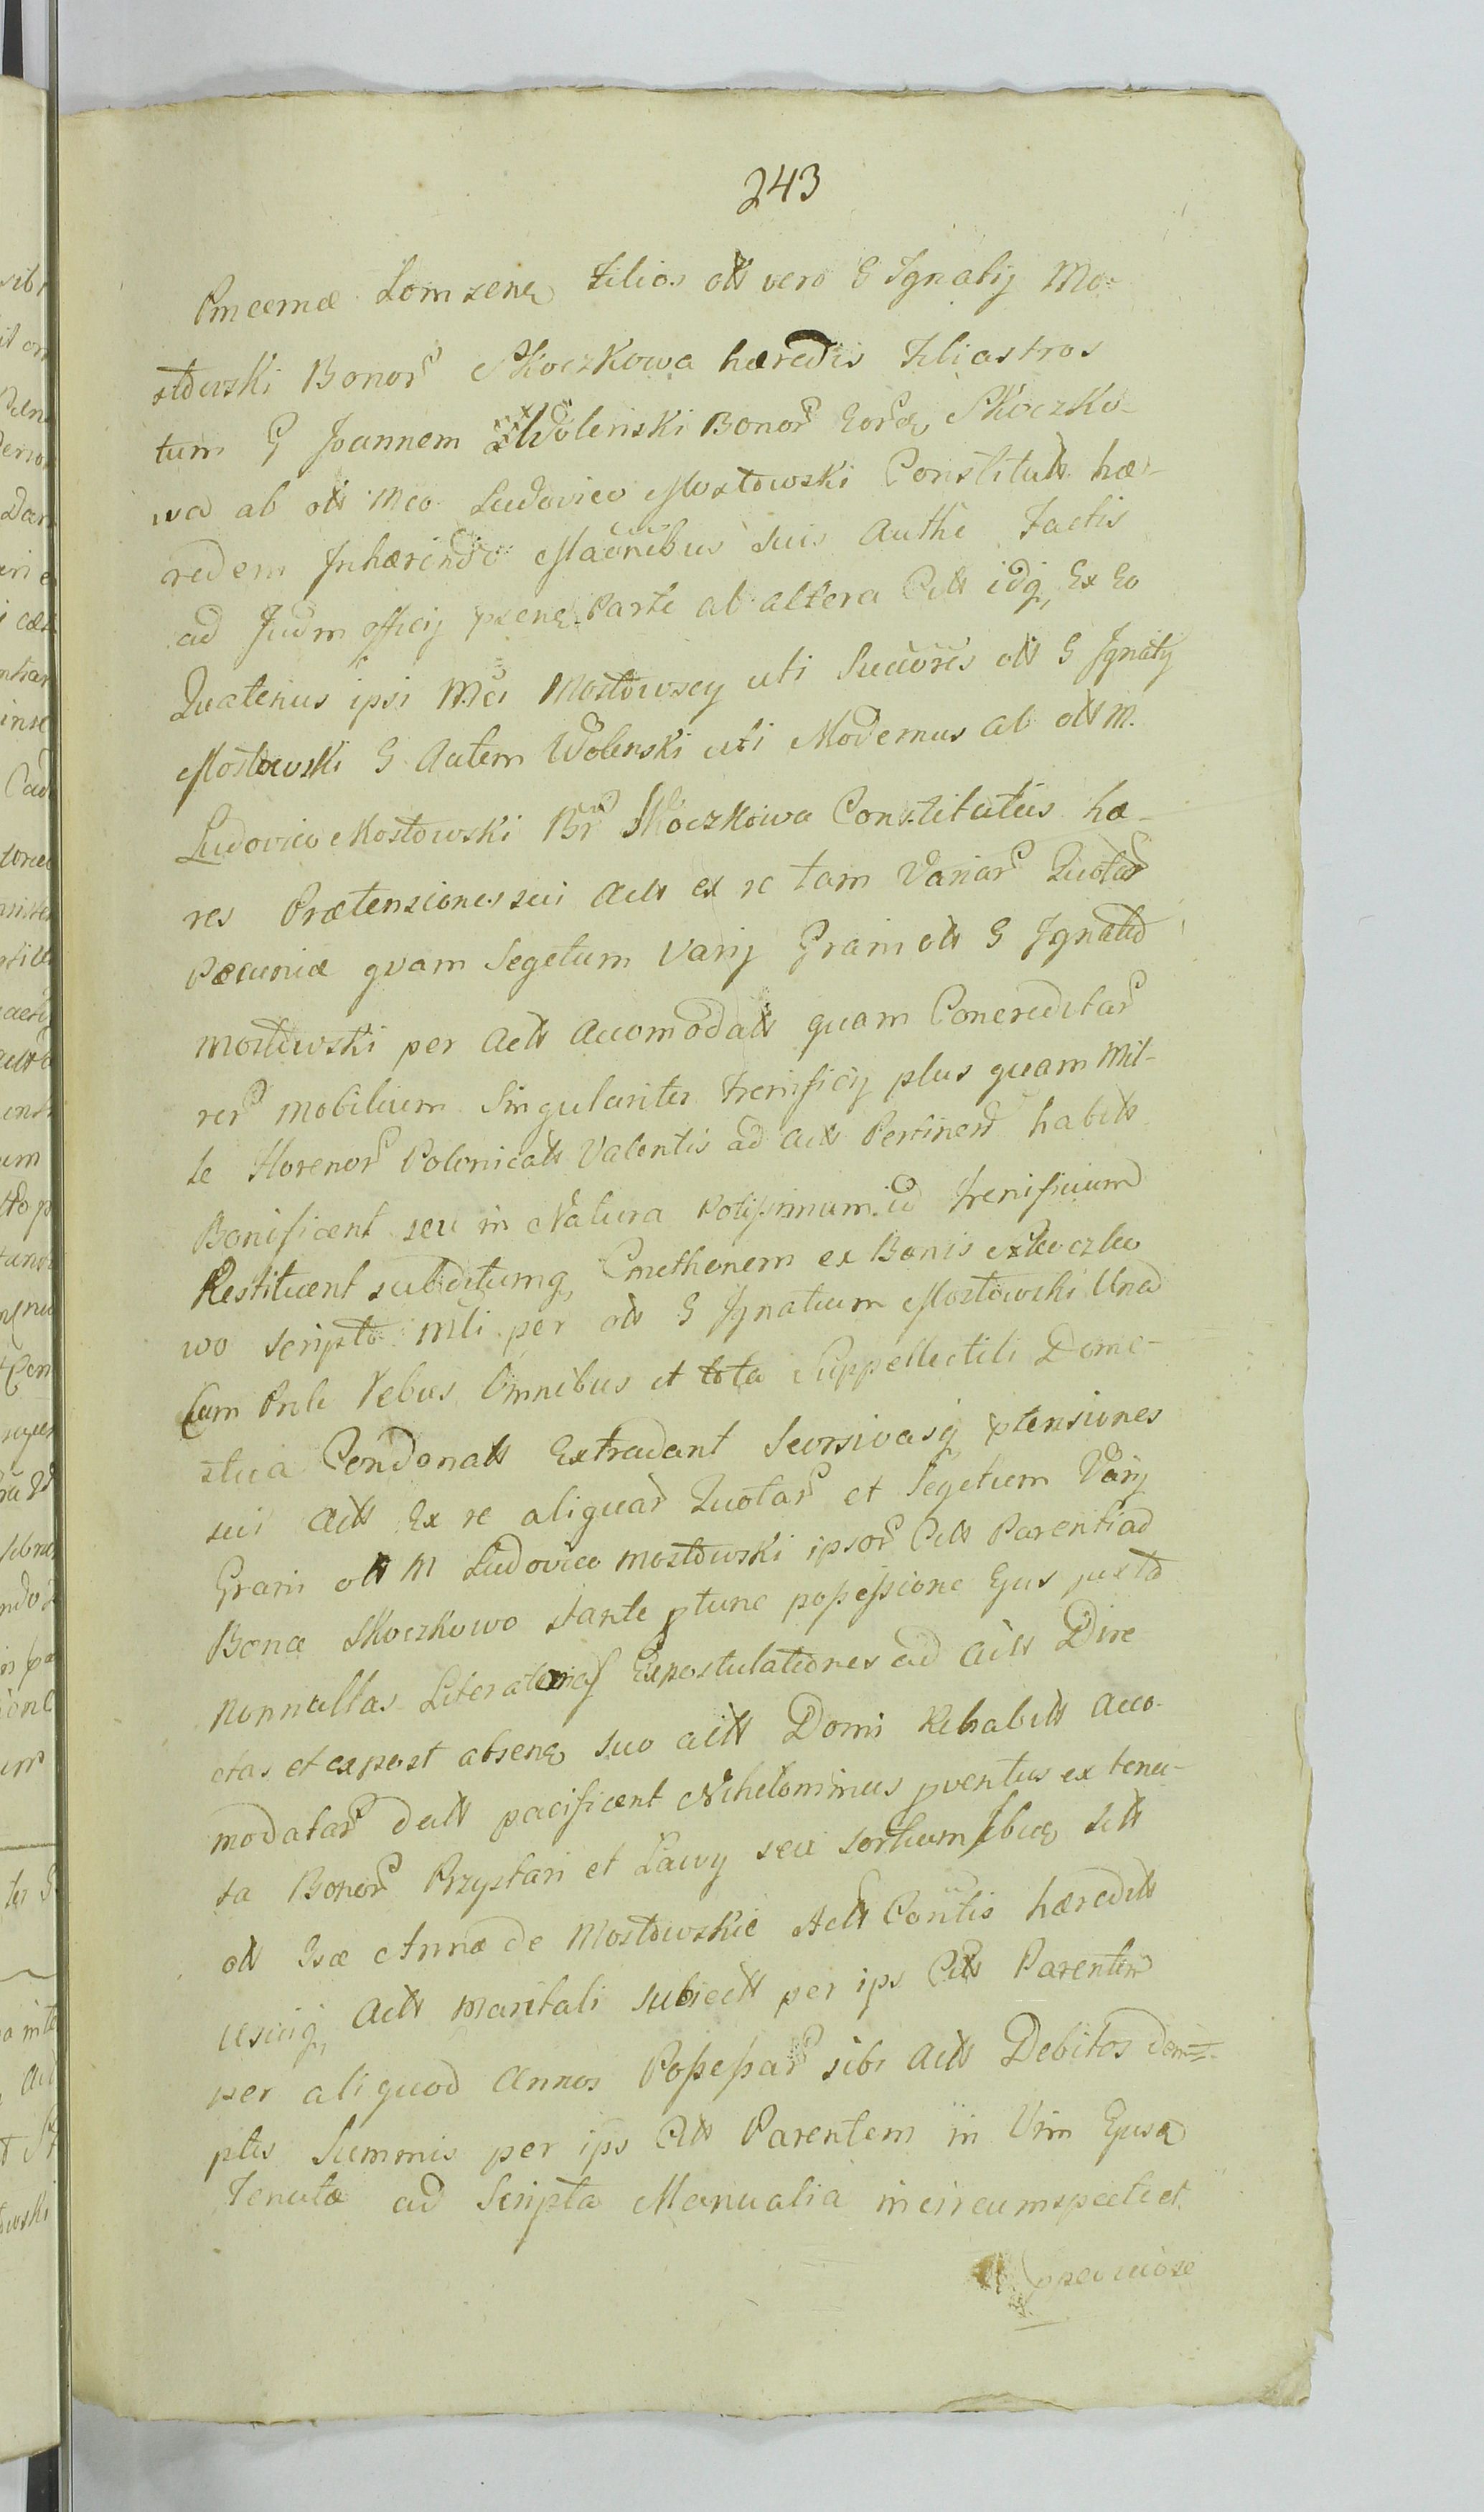 243
Pincernæ Lomzen Filios olt vero G Ignatij Mo-
stowski Bonor Skoczkowa hæredis Filiastros
tum G Joannem Wolenski Bonor Eor Skoczko-
wa ab olt Mco Ludovico Mostowski Constitutt hæ-
redem Inhærendo suis Authe Factis
ad Judm officij psen Parte ab altera Citt idq Ex Eo
Quatenus ipsi Mci Mostowscy uti Succores olt G Ignatij
Mostowski G Autem Wolenski uti Modernus ab olt M.
Ludovico Mostowski Br Skoczkowa Constitutus hæ-
res Prætensiones sui Actt ex re tam Variar Quotar
Pæcuniæ quam Segetum Varij Grani olt G Ignatio
Mostowski per Actt Accomodatt quam Concreditar
rer Mobilium Singulariter Frenificij plus quam Mil-
le Florenor Polonicatt Valentis ad Actt Pertinen habitt
Bonificent seu in Natura Potissimum id Frenificium
Restituent subditumq Cmethonem ex Bonis
wo scripto Mli per olt G Ignatium Mostowski Una
Cum Prole Rebus Omnibus et tota Suppellectili Dome-
stica Condonatt Extradant Seorsivasq ptensiones
sui Actt Ex re aliquar Quotar et Segetum Varij
Grani olt M Ludovico Mostowski ipsor Citt Parenti ad
Bona Skoczkowo stante ptunc possessione Ejus juxta
Nonnullas Literatorias Expostulationes ad Actt Dire
ctas et expost absen suo actt Domi Rehabitt Acco-
modatar datt pacificent Nihilominus pventus ex tenu-
ta Bonor Przystań et Ławy seu sortium Ibid sitt
olt Gsæ Annæ de Mostowskie Actt Contis hæreditt
usuiq Actt Maritali subiectt per ips Citt Parentem
per aliquod Annos Possessar sibi Actt Debitos dem-
ptis Summis per ips Citt Parentem in Vim Ejusd
Tenutæ ad Scripta Manualia incircumspecte et